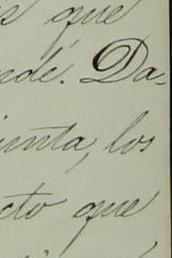 s que
nde. Da-
ienta, los
cto que